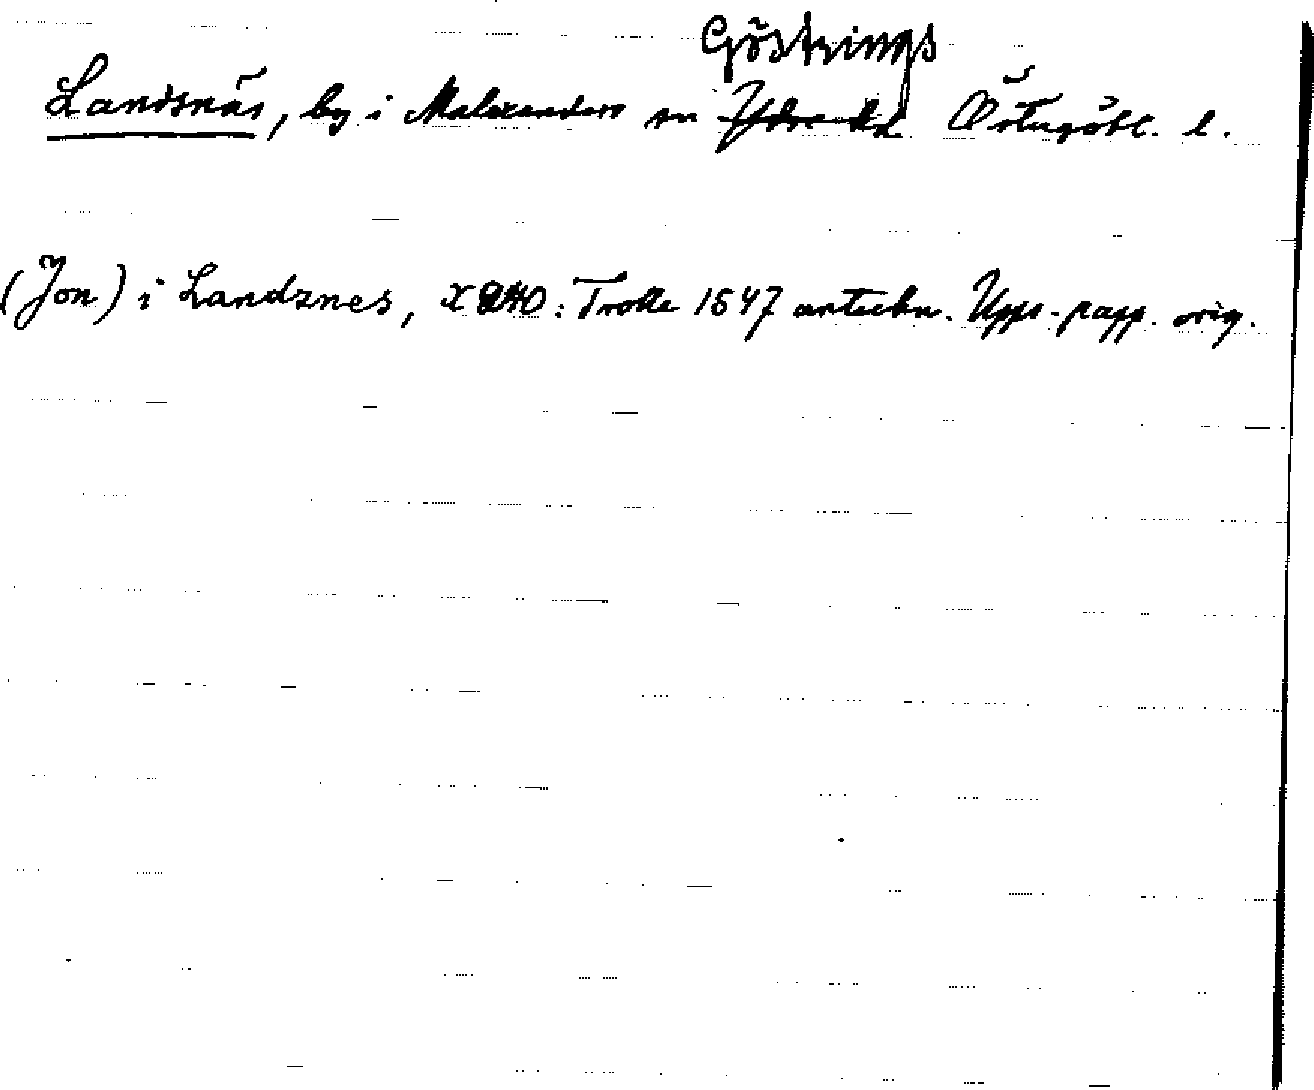 Göstrings
Landsnäs, by i Malexanders sn Ydre hd Östergötl. l.
(Jon) i Landznes, X 240: Trolle 1547 anteckn. Upps. papp. orig.